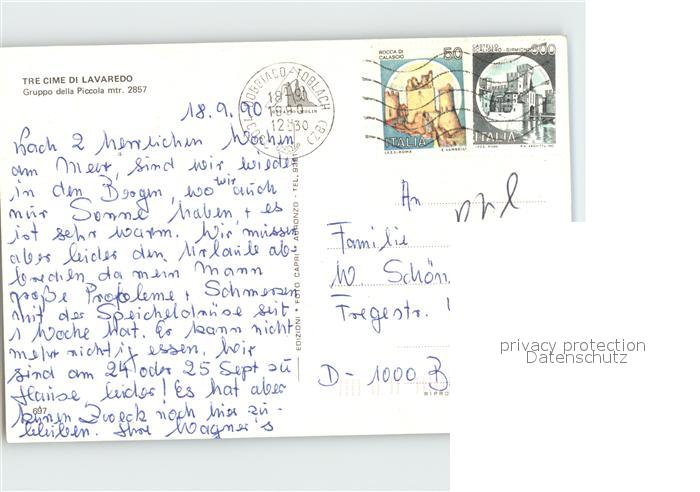 TRE CIME DI LAVAREDO
Gruppo della Piccola mtr. 2857
18.9.90
Nach 2 herrlichen Wochen
am Meer, sind wir wieder
in den Bergen, wo wir auch
nur Sonne haben, + es
ist sehr warm. Wir müssen
aber leider den Urlaub ab-
brechen da mein Mann
große Probleme + Schmerzen
mit der Speicheldrüse seit
1 Woche hat. Er kann nicht
mehr richtig essen. Wir
sind am 24 oder 25 Sept zu
Hause leider! Es hat aber
keinen Zweck noch hier zu-
bleiben. Ihre Wagner's
697
EDIZIONI * FOTO CAPRI - AURONZO - TEL.
DOBBIACO - TOBLACH (BZ)
18 9
1990
12 30
ROCCA DI
CALASCIO
50
ITALIA
I.P.Z.S. - ROMA
CASTELLO
SCALIGERO - SIRMIONE
ITALIA
An
Familie
W. Schön
Fregestr.
D - 1000 B
RIPRO
privacy protection
Datenschutz